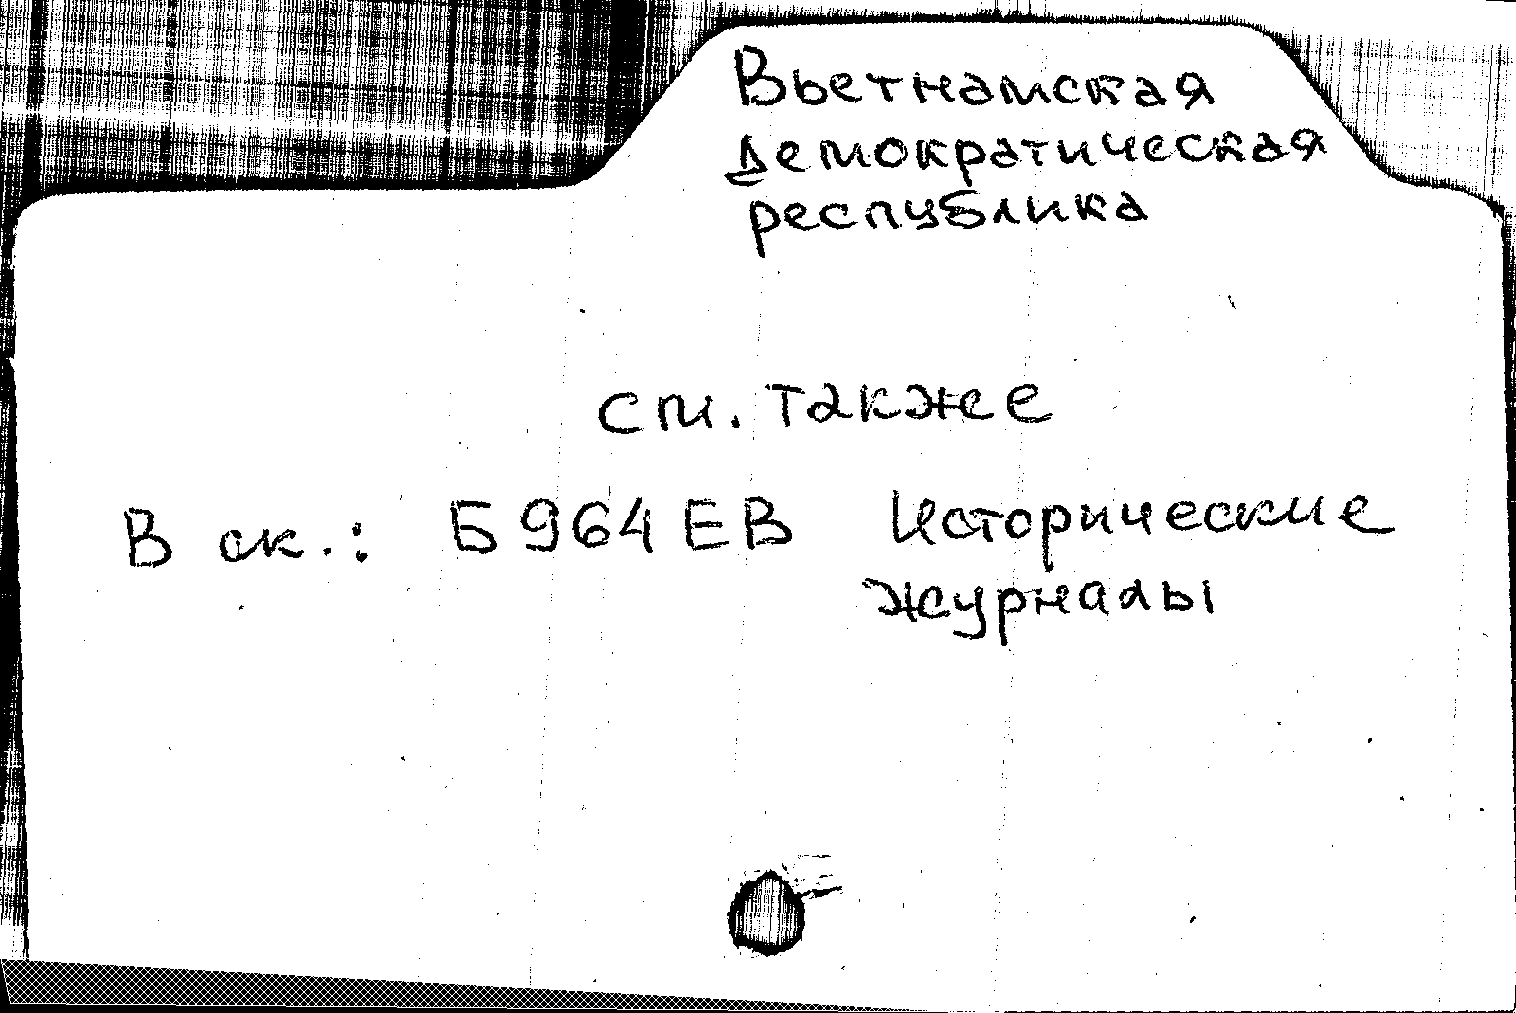 Вьетнамская
демократическая
республика
см. также
В ск.: Б964ЕВ Исторические
журналы